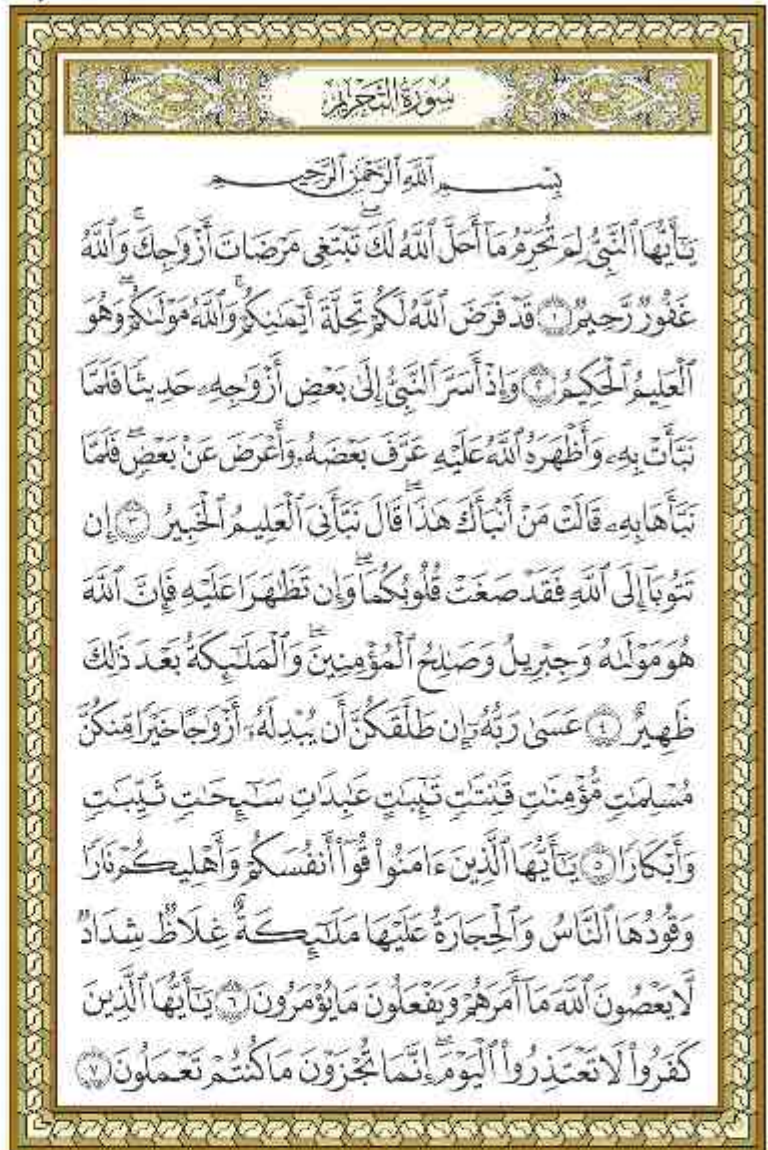 سُورَةُ التَّحْرِيمِ
بِسْمِ ٱللَّهِ ٱلرَّحْمَٰنِ ٱلرَّحِيمِ
يَـٰٓأَيُّهَا ٱلنَّبِىُّ لِمَ تُحَرِّمُ مَآ أَحَلَّ ٱللَّهُ لَكَ ۖ تَبْتَغِى مَرْضَاتَ أَزْوَٰجِكَ ۚ وَٱللَّهُ
غَفُورٌ رَّحِيمٌ ١ قَدْ فَرَضَ ٱللَّهُ لَكُمْ تَحِلَّةَ أَيْمَـٰنِكُمْ ۚ وَٱللَّهُ مَوْلَىٰكُمْ ۖ وَهُوَ
ٱلْعَلِيمُ ٱلْحَكِيمُ ٢ وَإِذْ أَسَرَّ ٱلنَّبِىُّ إِلَىٰ بَعْضِ أَزْوَٰجِهِۦ حَدِيثًا فَلَمَّا
نَبَّأَتْ بِهِۦ وَأَظْهَرَهُ ٱللَّهُ عَلَيْهِ عَرَّفَ بَعْضَهُۥ وَأَعْرَضَ عَنۢ بَعْضٍ ۖ فَلَمَّا
نَبَّأَهَا بِهِۦ قَالَتْ مَنْ أَنۢبَأَكَ هَـٰذَا ۖ قَالَ نَبَّأَنِىَ ٱلْعَلِيمُ ٱلْخَبِيرُ ٣ إِن
تَتُوبَآ إِلَى ٱللَّهِ فَقَدْ صَغَتْ قُلُوبُكُمَا ۖ وَإِن تَظَـٰهَرَا عَلَيْهِ فَإِنَّ ٱللَّهَ
هُوَ مَوْلَىٰهُ وَجِبْرِيلُ وَصَـٰلِحُ ٱلْمُؤْمِنِينَ ۖ وَٱلْمَلَـٰٓئِكَةُ بَعْدَ ذَٰلِكَ
ظَهِيرٌ ٤ عَسَىٰ رَبُّهُۥٓ إِن طَلَّقَكُنَّ أَن يُبْدِلَهُۥٓ أَزْوَٰجًا خَيْرًا مِّنكُنَّ
مُسْلِمَـٰتٍ مُّؤْمِنَـٰتٍ قَـٰنِتَـٰتٍ تَـٰٓئِبَـٰتٍ عَـٰبِدَٰتٍ سَـٰٓئِحَـٰتٍ ثَيِّبَـٰتٍ
وَأَبْكَارًا ٥ يَـٰٓأَيُّهَا ٱلَّذِينَ ءَامَنُوا۟ قُوٓا۟ أَنفُسَكُمْ وَأَهْلِيكُمْ نَارًا
وَقُودُهَا ٱلنَّاسُ وَٱلْحِجَارَةُ عَلَيْهَا مَلَـٰٓئِكَةٌ غِلَاظٌ شِدَادٌ
لَّا يَعْصُونَ ٱللَّهَ مَآ أَمَرَهُمْ وَيَفْعَلُونَ مَا يُؤْمَرُونَ ٦ يَـٰٓأَيُّهَا ٱلَّذِينَ
كَفَرُوا۟ لَا تَعْتَذِرُوا۟ ٱلْيَوْمَ ۖ إِنَّمَا تُجْزَوْنَ مَا كُنتُمْ تَعْمَلُونَ ٧